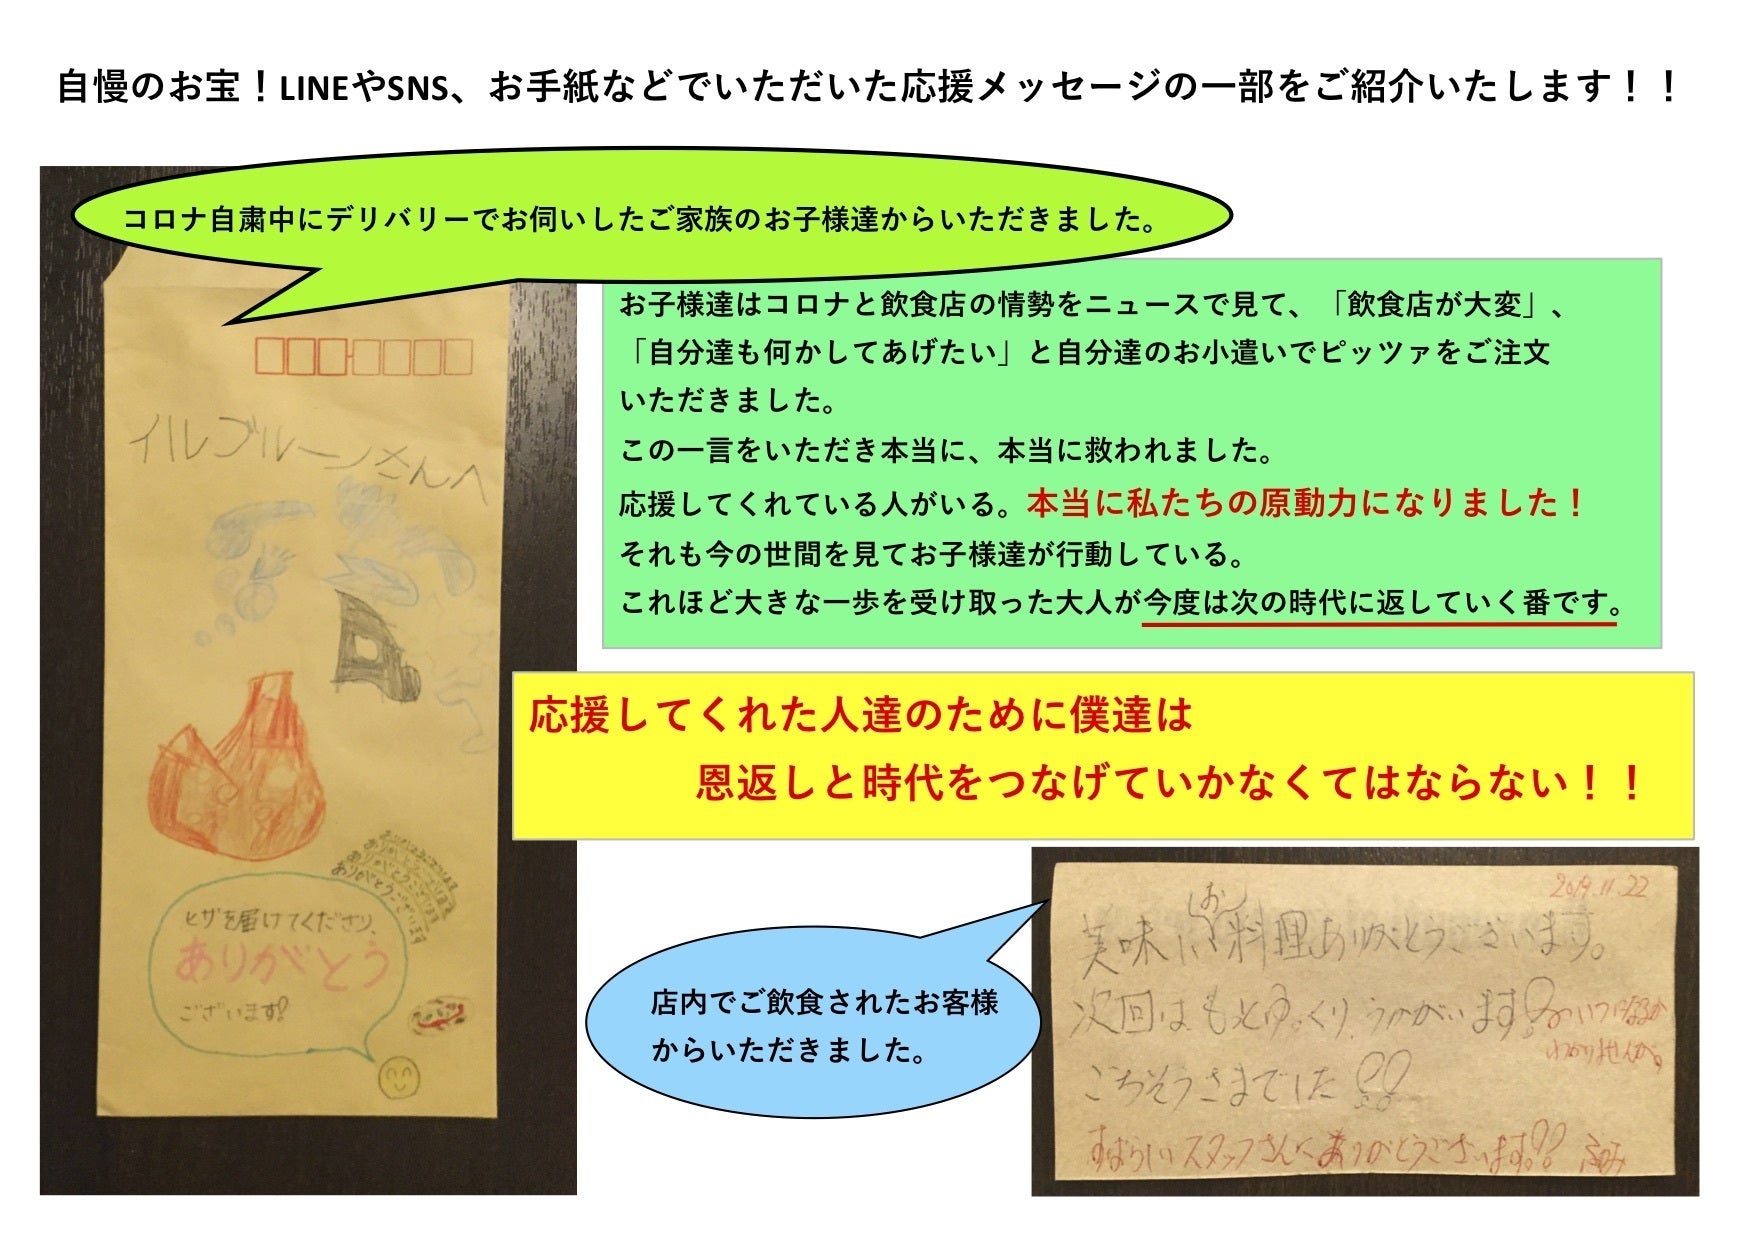 自慢のお宝！LINEやSNS、お手紙などでいただいた応援メッセージの一部をご紹介いたします！！
コロナ自粛中にデリバリーでお伺いしたご家族のお子様達からいただきました。
お子様達はコロナと飲食店の情勢をニュースで見て、「飲食店が大変」、
「自分達も何かしてあげたい」と自分達のお小遣いでピッツァをご注文
いただきました。
この一言をいただき本当に、本当に救われました。
応援してくれている人がいる。本当に私たちの原動力になりました！
それも今の世間を見てお子様達が行動している。
これほど大きな一歩を受け取った大人が今度は次の時代に返していく番です。
応援してくれた人達のために僕達は
恩返しと時代をつなげていかなくてはならない！！
イルブルーノさんへ
ありがとうございます
ありがとうございます
ありがとうございます
ありがとうございます
ピザを届けてくださり、
ありがとう
ございます!
店内でご飲食されたお客様
からいただきました。
2019.11.22
お
美味しい料理ありがとうございます。
次回はもっとゆっくりうかがいます!
いつになるか
わかりませんが。
ごちそうさまでした!!
すばらしいスタッフさんへありがとうございます!!